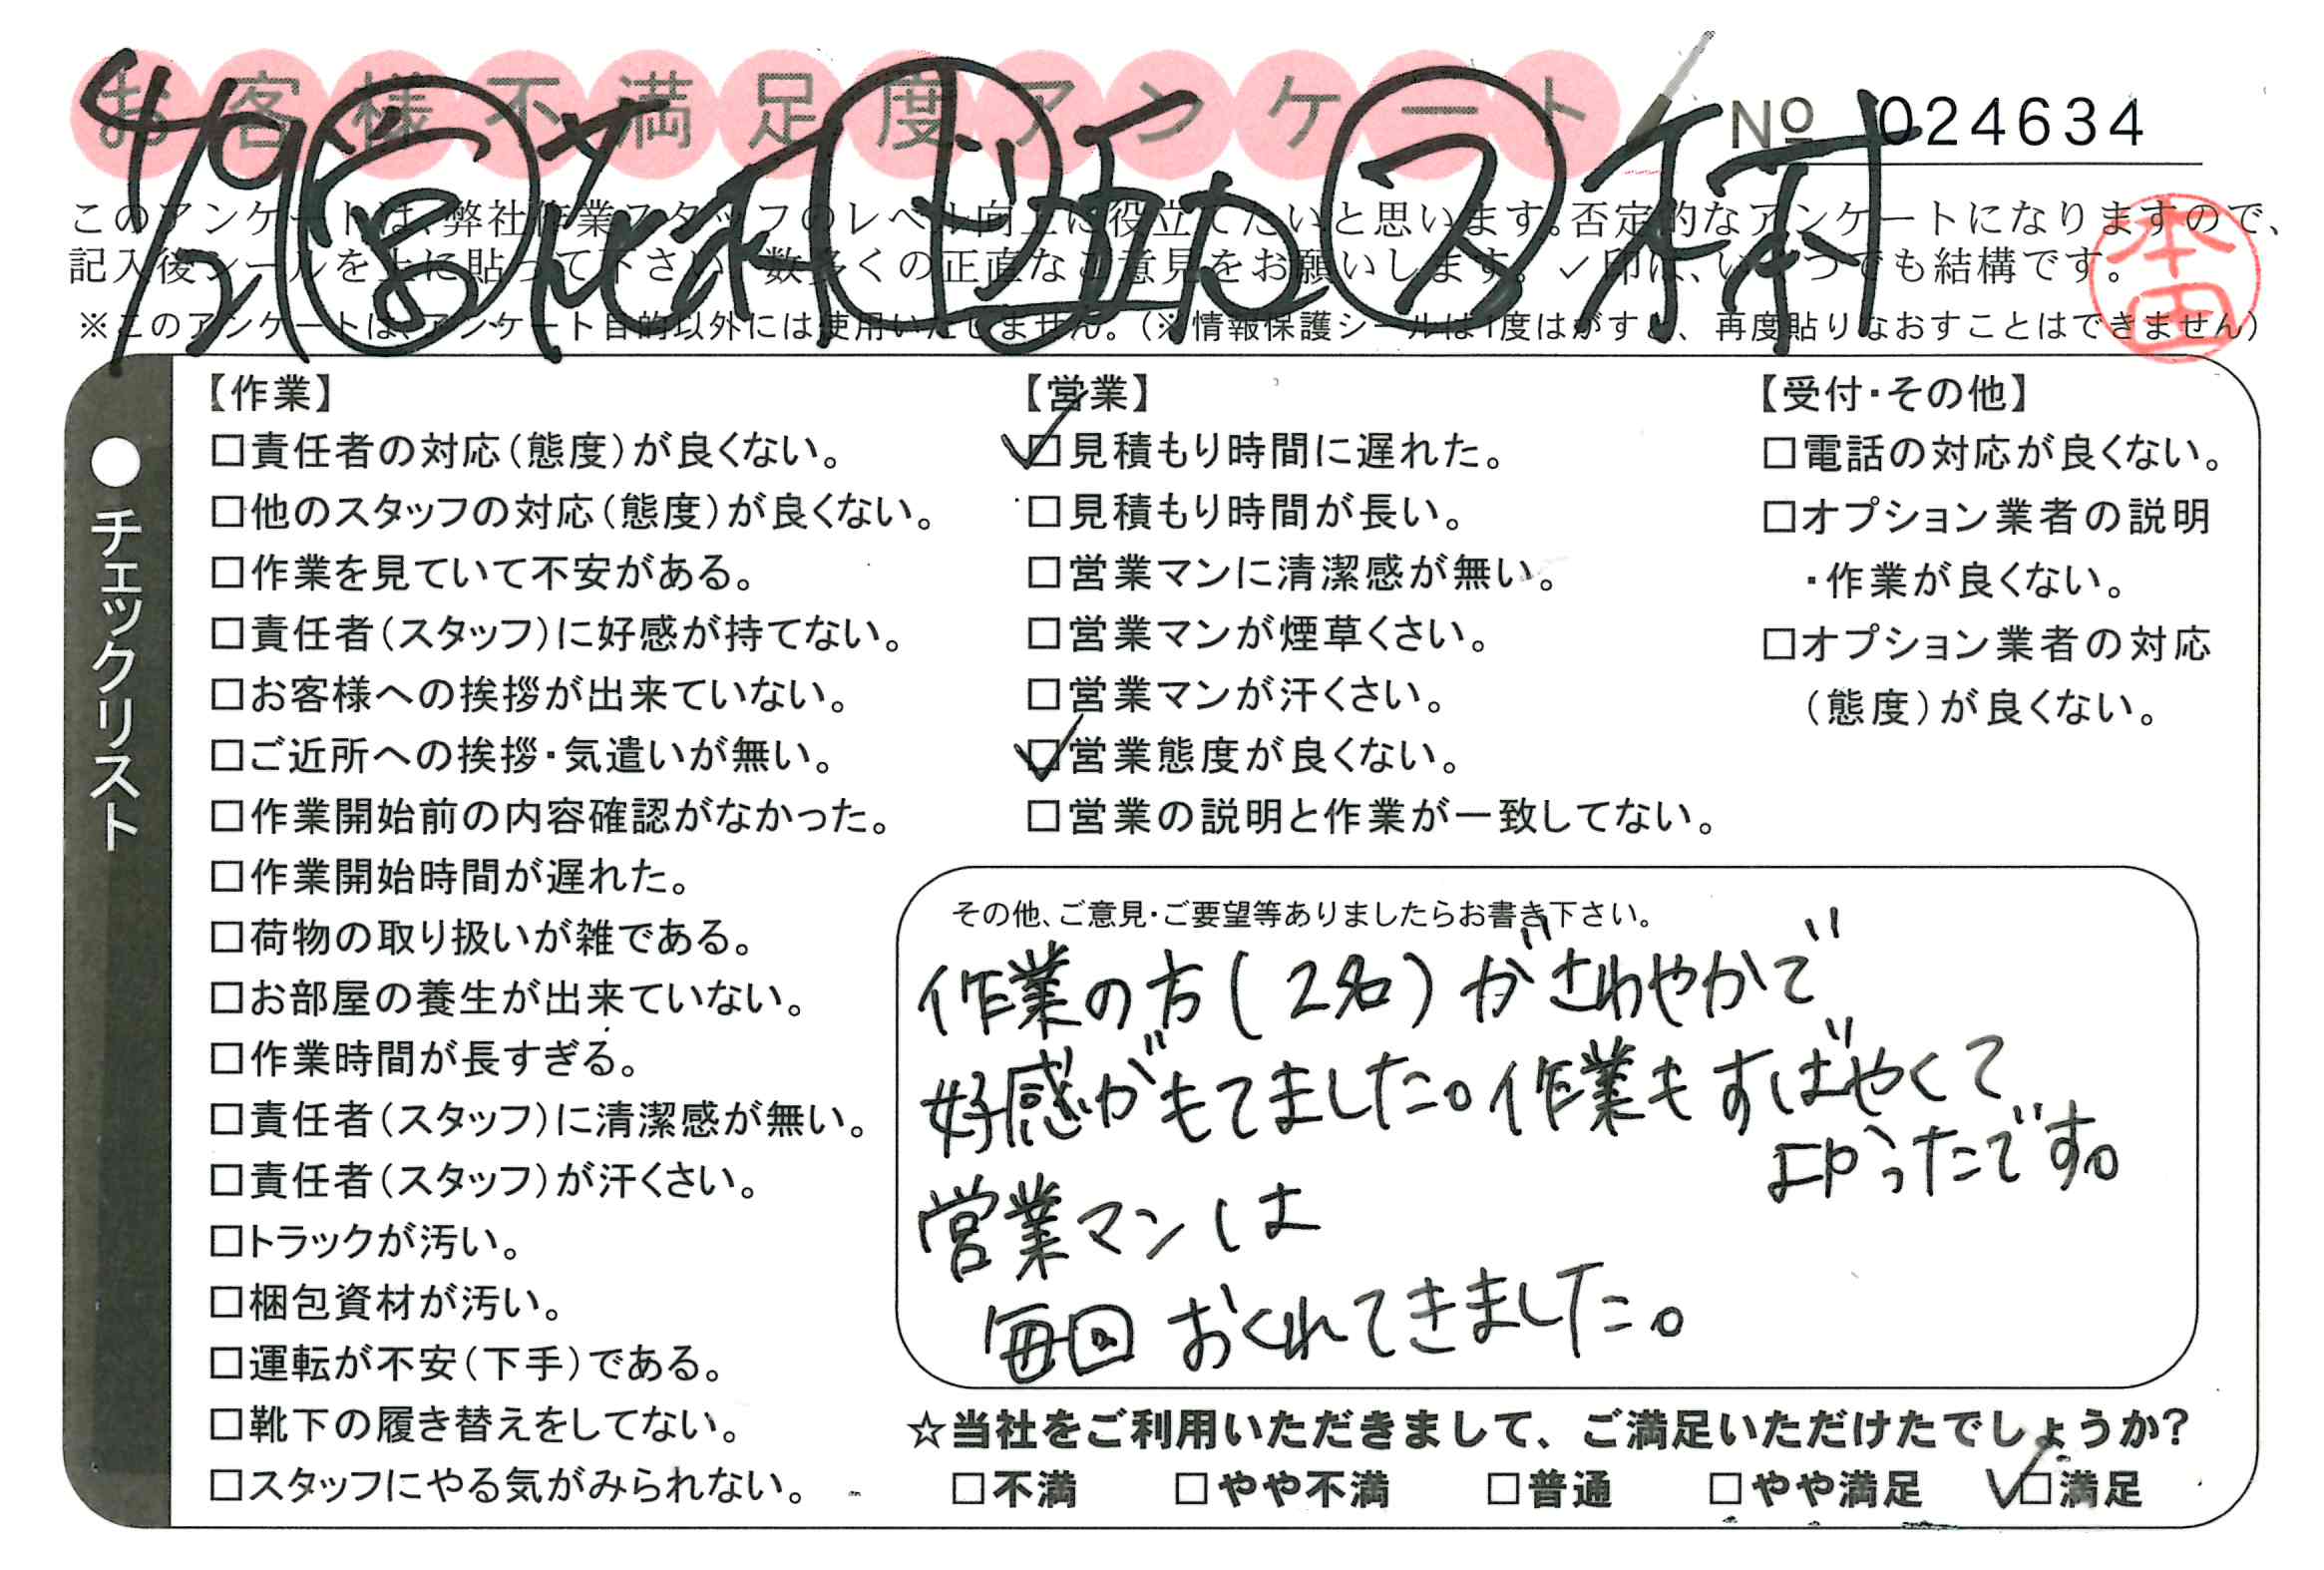 お客様不満足度アンケート
№ 024634
このアンケートは、弊社作業スタッフのレベル向上に役立てたいと思います。否定的なアンケートになりますので、
記入後シールを上に貼って下さい。数多くの正直なご意見をお願いします。✓印は、いくつでも結構です。
※このアンケートは、アンケート目的以外には使用いたしません。(※情報保護シールは1度はがすと、再度貼りなおすことはできません)
本田
●チェックリスト
【作業】
□責任者の対応(態度)が良くない。
□他のスタッフの対応(態度)が良くない。
□作業を見ていて不安がある。
□責任者(スタッフ)に好感が持てない。
□お客様への挨拶が出来ていない。
□ご近所への挨拶・気遣いが無い。
□作業開始前の内容確認がなかった。
□作業開始時間が遅れた。
□荷物の取り扱いが雑である。
□お部屋の養生が出来ていない。
□作業時間が長すぎる。
□責任者(スタッフ)に清潔感が無い。
□責任者(スタッフ)が汗くさい。
□トラックが汚い。
□梱包資材が汚い。
□運転が不安(下手)である。
□靴下の履き替えをしてない。
□スタッフにやる気がみられない。
【営業】
☑見積もり時間に遅れた。
□見積もり時間が長い。
□営業マンに清潔感が無い。
□営業マンが煙草くさい。
□営業マンが汗くさい。
☑営業態度が良くない。
□営業の説明と作業が一致してない。
【受付・その他】
□電話の対応が良くない。
□オプション業者の説明
・作業が良くない。
□オプション業者の対応
(態度)が良くない。
その他、ご意見・ご要望等ありましたらお書き下さい。
作業の方(2名)がさわやかで
好感がもてました。作業もすばやくて
よかったです。
営業マンは
毎回おくれてきました。
☆当社をご利用いただきまして、ご満足いただけたでしょうか?
□不満 □やや不満 □普通 □やや満足 ☑満足